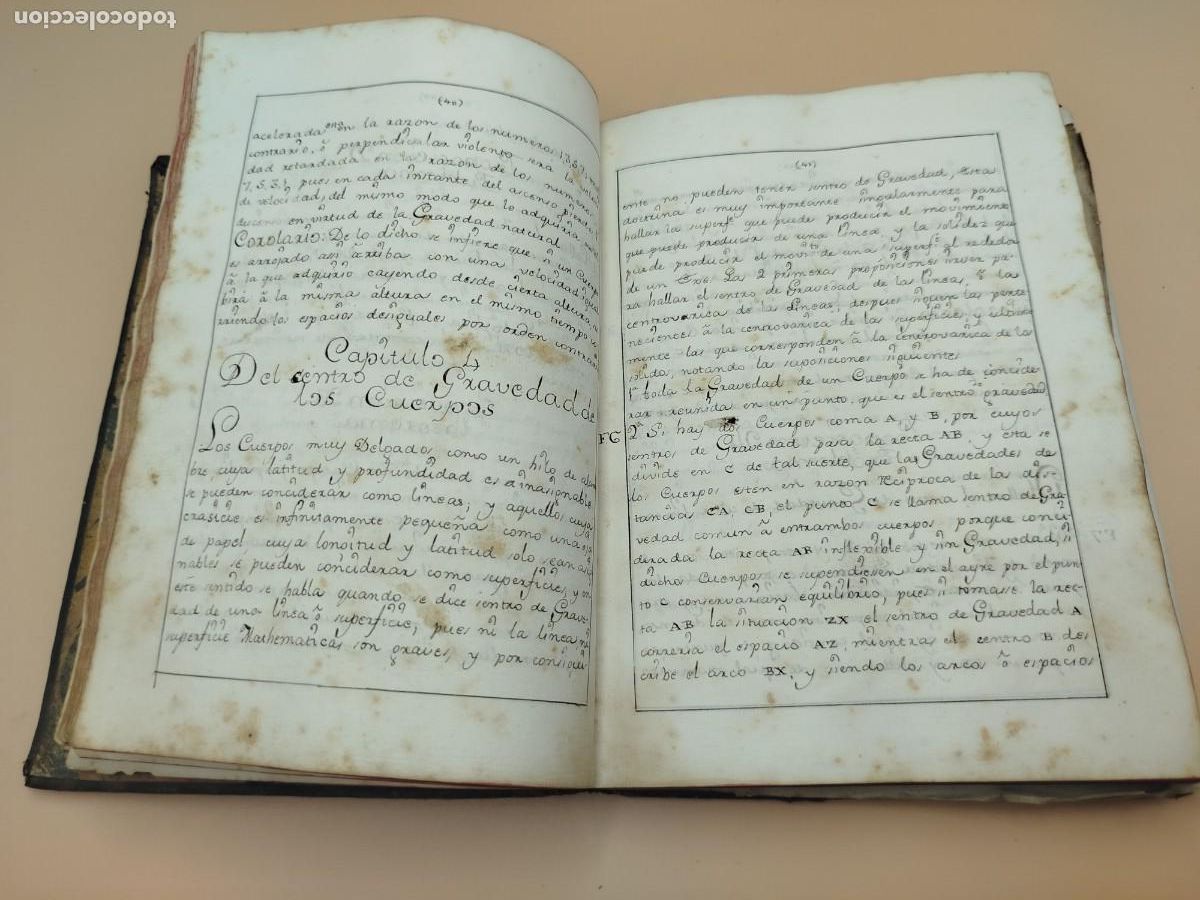 todocoleccion
(40)
acelerada en la razon de los numeros 1, 3, 5, 7,
contrario, o perpendicular violento sera la
dad retardada en la razon de los numeros
7, 5, 3, 1, pues en cada instante del ascenso pierde
de velocidad, del mismo modo que lo adquiria
en virtud de la Gravedad natural
Corolario: De lo dicho se infiere que si un Cuerpo
es arrojado acia arriba con una velocidad
á la que adquirio cayendo desde cierta altura,
birá á la misma altura en el mismo tiempo
rriendo los espacios desiguales por orden contrario
Capitulo 4
Del sentro de Gravedad de
los Cuerpos
Los Cuerpos muy Delgados, como un hilo de
bre cuya latitud y profundidad es
se pueden conciderar como lineas; y aquellos cuya
crasicie es infinitamente pequeña como una
de papel, cuya lonjitud y latitud solo sean
nables se pueden conciderar como superficies, y en
este sentido se habla quando se dice sentro de Grave-
dad de una linea o superficie, pues ni la linea ni
superficie Mathematicas son graves, y por consigui-
(41)
ente no pueden tener sentro de Gravedad, Esta
doctrina es muy importante singularmente para
hallar la superfe que puede producir el movimiento
que puede producir de una linea y la solidez que
puede producir el movto de una superfe al rededor
de un Exe. Las 2 primeras proposiciones sirven pa-
ra hallar el sentro de Gravedad de las lineas, o la
centrovarica de las lineas, despues siguen las perte
necientes á la centrovarica de las superficies y ultima
mente las que corresponden á la centrovarica de los
solidos, notando las suposiciones siguientes
1a toda la Gravedad de un Cuerpo se ha de concide
rar reunida en un punto, que es el sentro gravedad
F6
2a Si hay dos Cuerpos coma A, y B, por cuyos
sentros de Gravedad pasa la recta AB, y esta se
divide en C de tal suerte, que las Gravedades de
los Cuerpos esten en razon reciproca de las dis-
tancias CA, CB, el punto C se llama sentro de Gra-
vedad comun á entrambos cuerpos, porque conci-
derada la recta AB inflexible y sin Gravedad, si
dichos Cuerpos se supendiesen en el ayre por el pun
to C conservarian equilibrio, pues si tomase la rec-
ta AB la situacion ZX el sentro de Gravedad A
correria el espacio AZ, mientras el centro B des
cribe el arco BX, y siendo los arcos o espacios